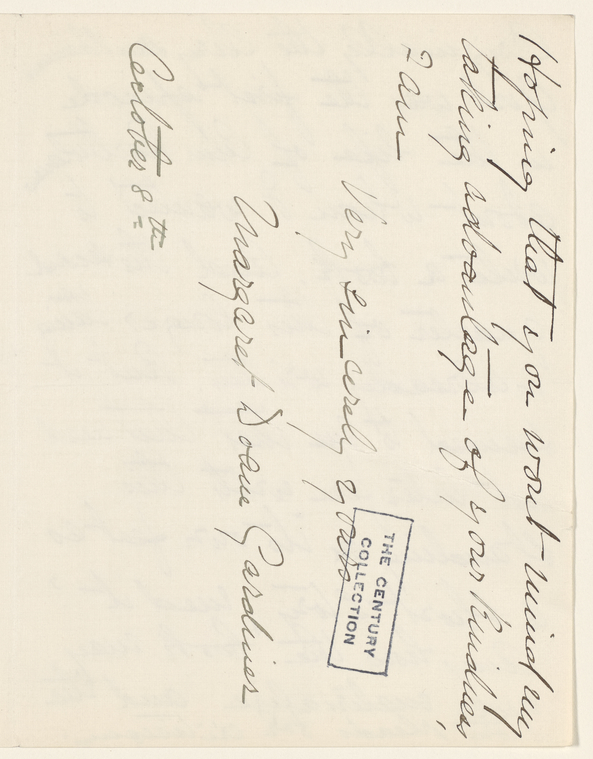 Hoping that you wont mind my
taking advantage of your kindness,
I am
Very sincerely yours
Margaret Doane Gardiner
October 8th
THE CENTURY
COLLECTION